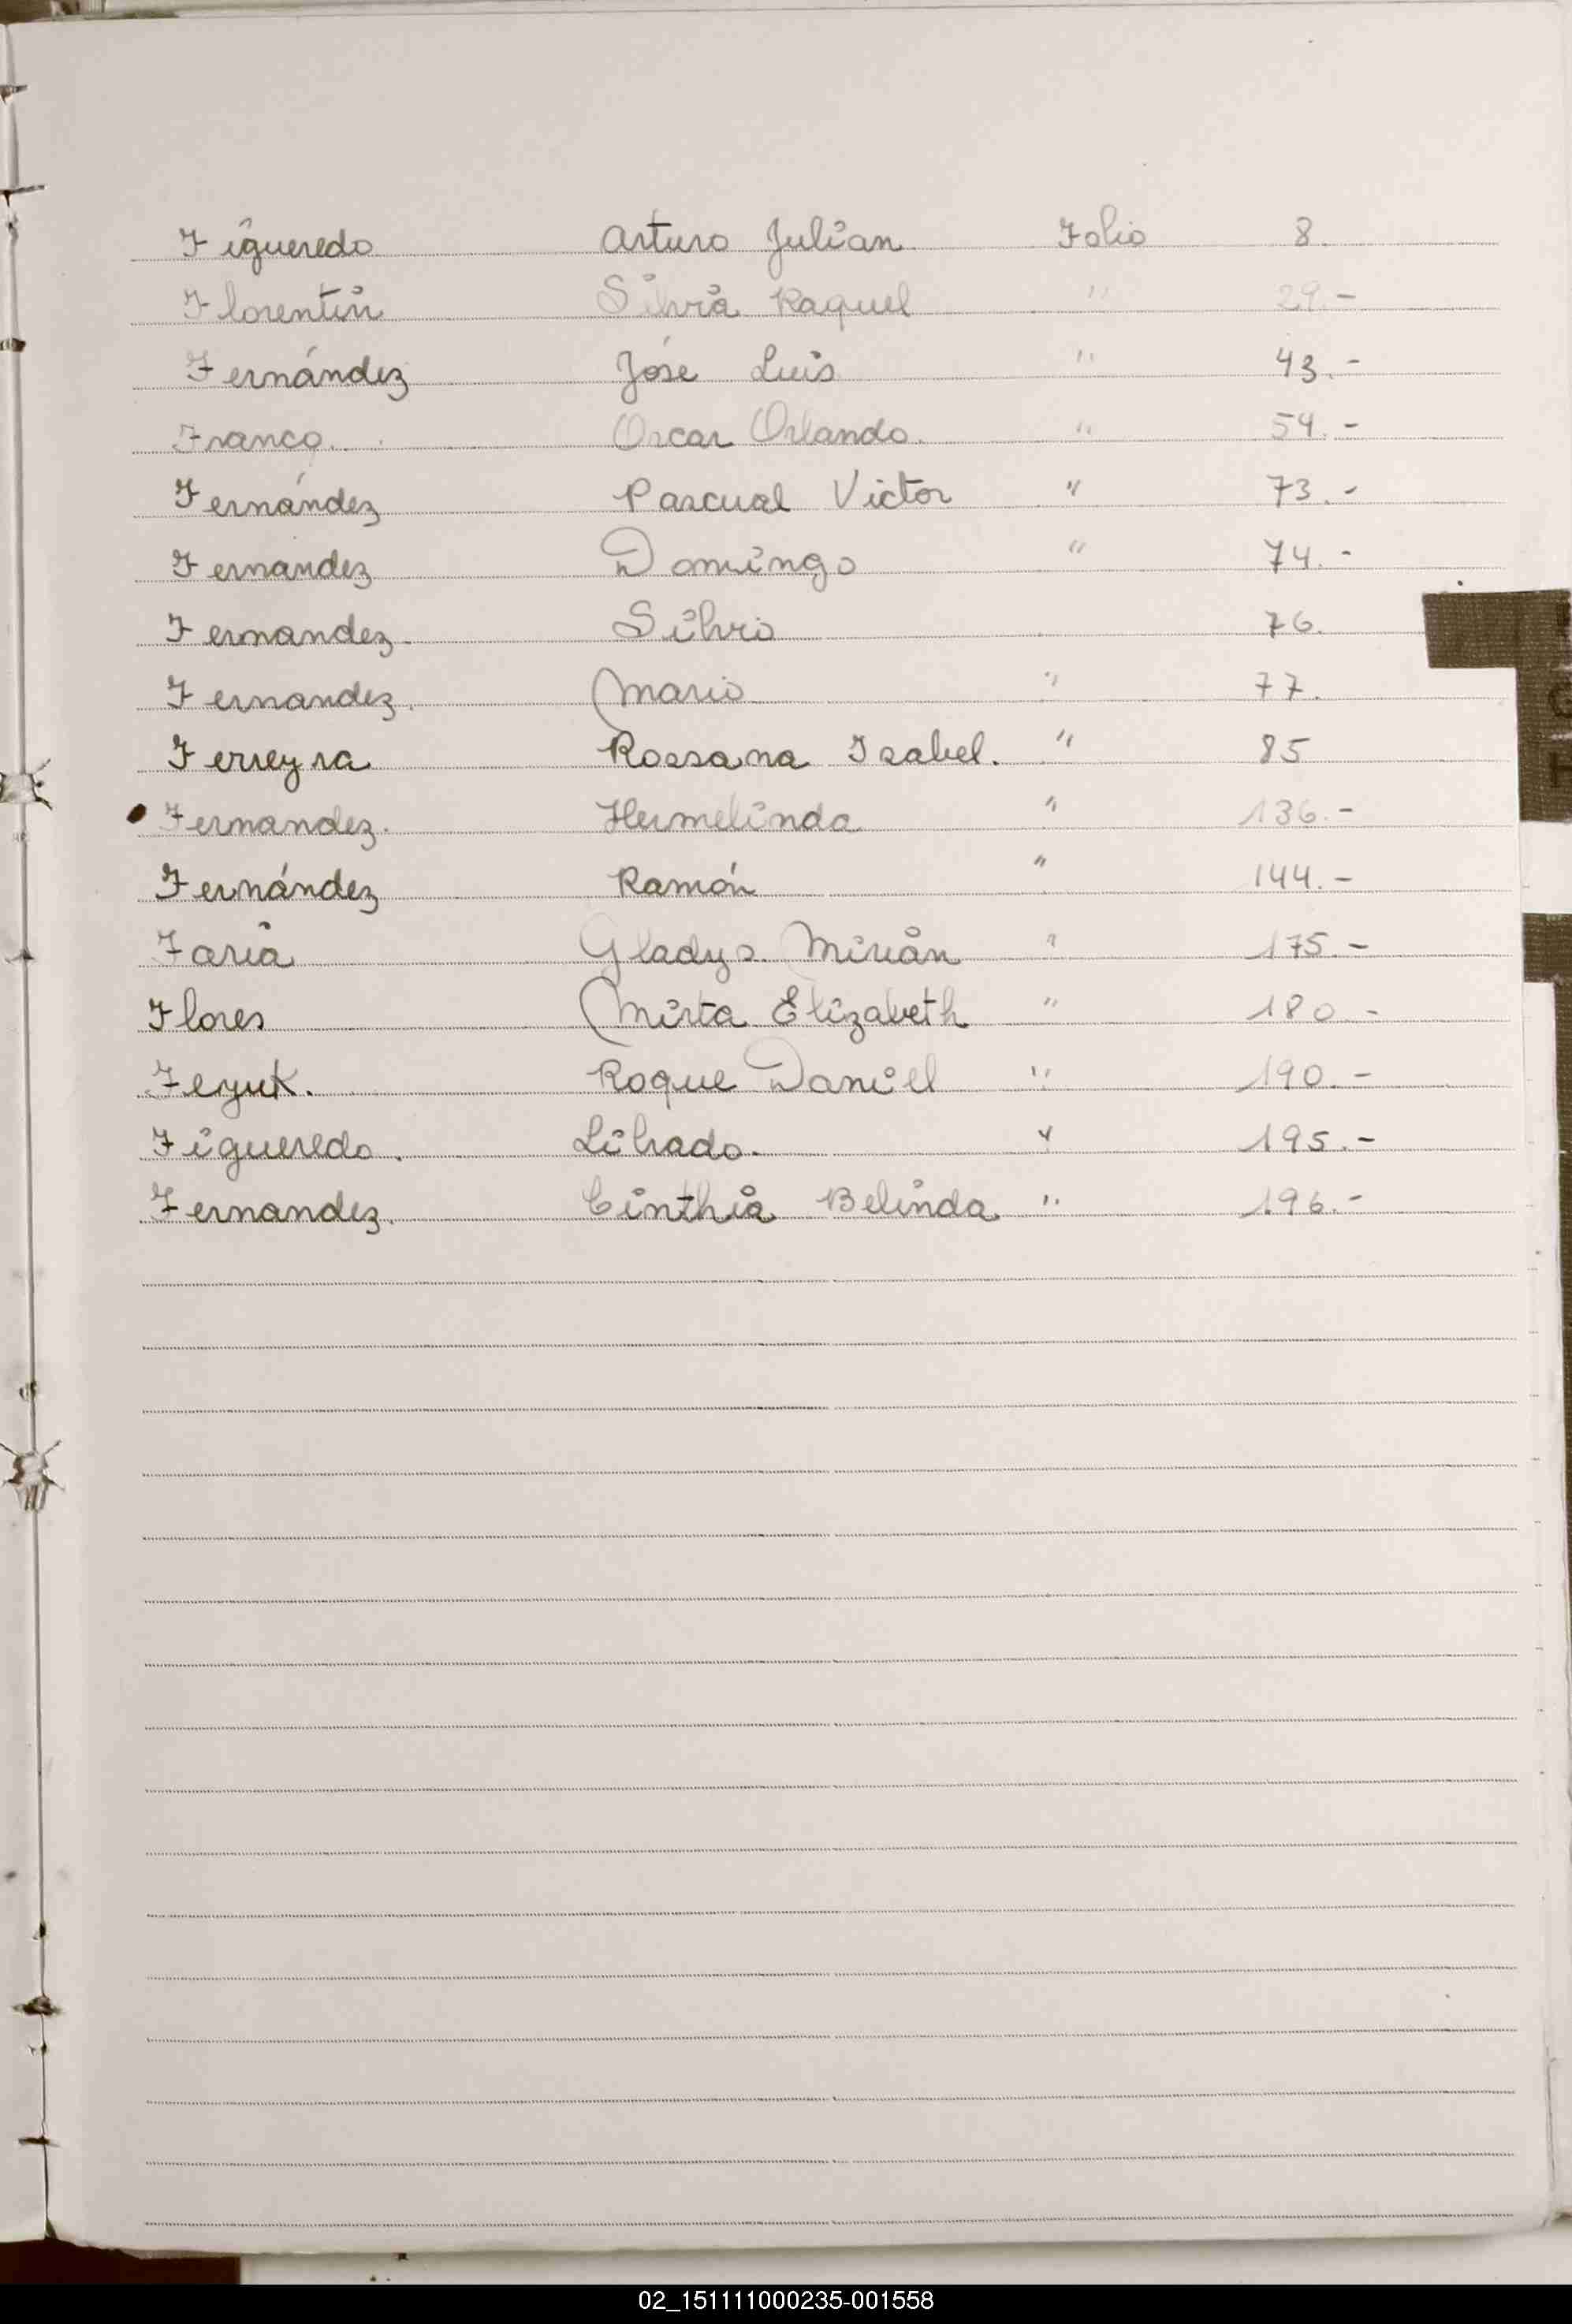 Figueredo Arturo Julian Folio 8.
Florentin Silvia Raquel " 29.-
Fernández José Luis " 43.-
Franco. Oscar Orlando. " 54.-
Fernández Pascual Victor " 73.-
Fernandez Domingo " 74.-
Fernandez. Silvio 76.
Fernandez. Mario " 77.
Ferreyra Rossana Isabel. " 85
Fernandez. Hermelinda " 136.-
Fernández Ramón " 144.-
Faria Gladys Mirian " 175.-
Flores Mirta Elizabeth " 180.-
Feyuk. Roque Daniel " 190.-
Figueredo. Librado. " 195.-
Fernandez. Cinthia Belinda " 196.-
02_151111000235-001558